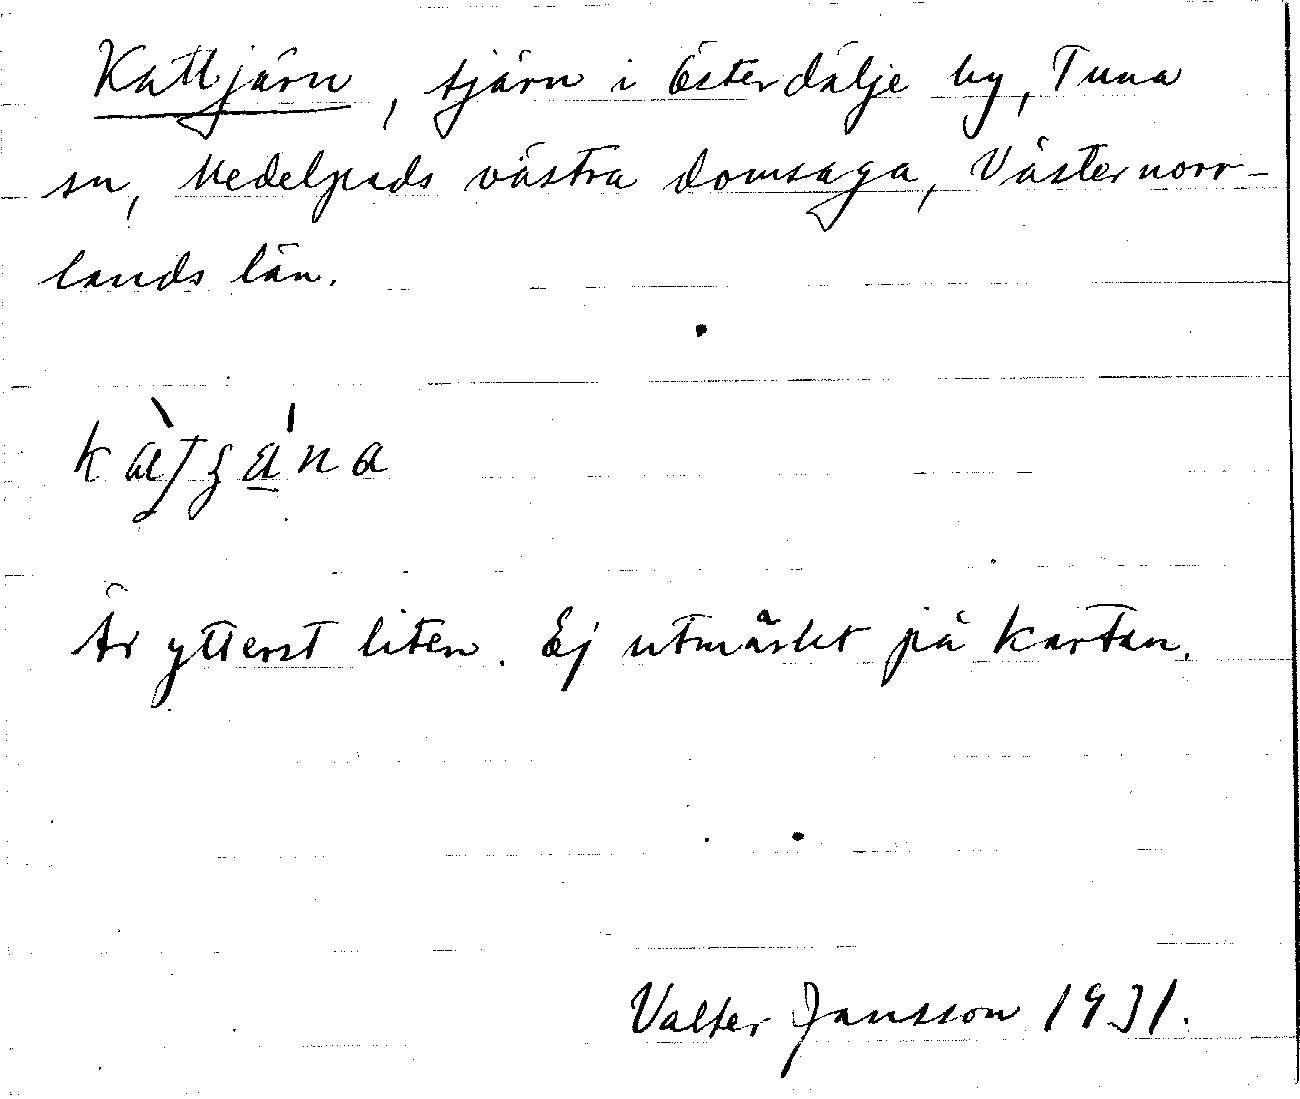 Kattjärn, tjärn i Österdälje by, Tuna
sn, Medelpads västra domsaga, Västernorr-
lands län.
Är ytterst liten. Ej utmärkt på kartan.
Valter Jansson 1931.